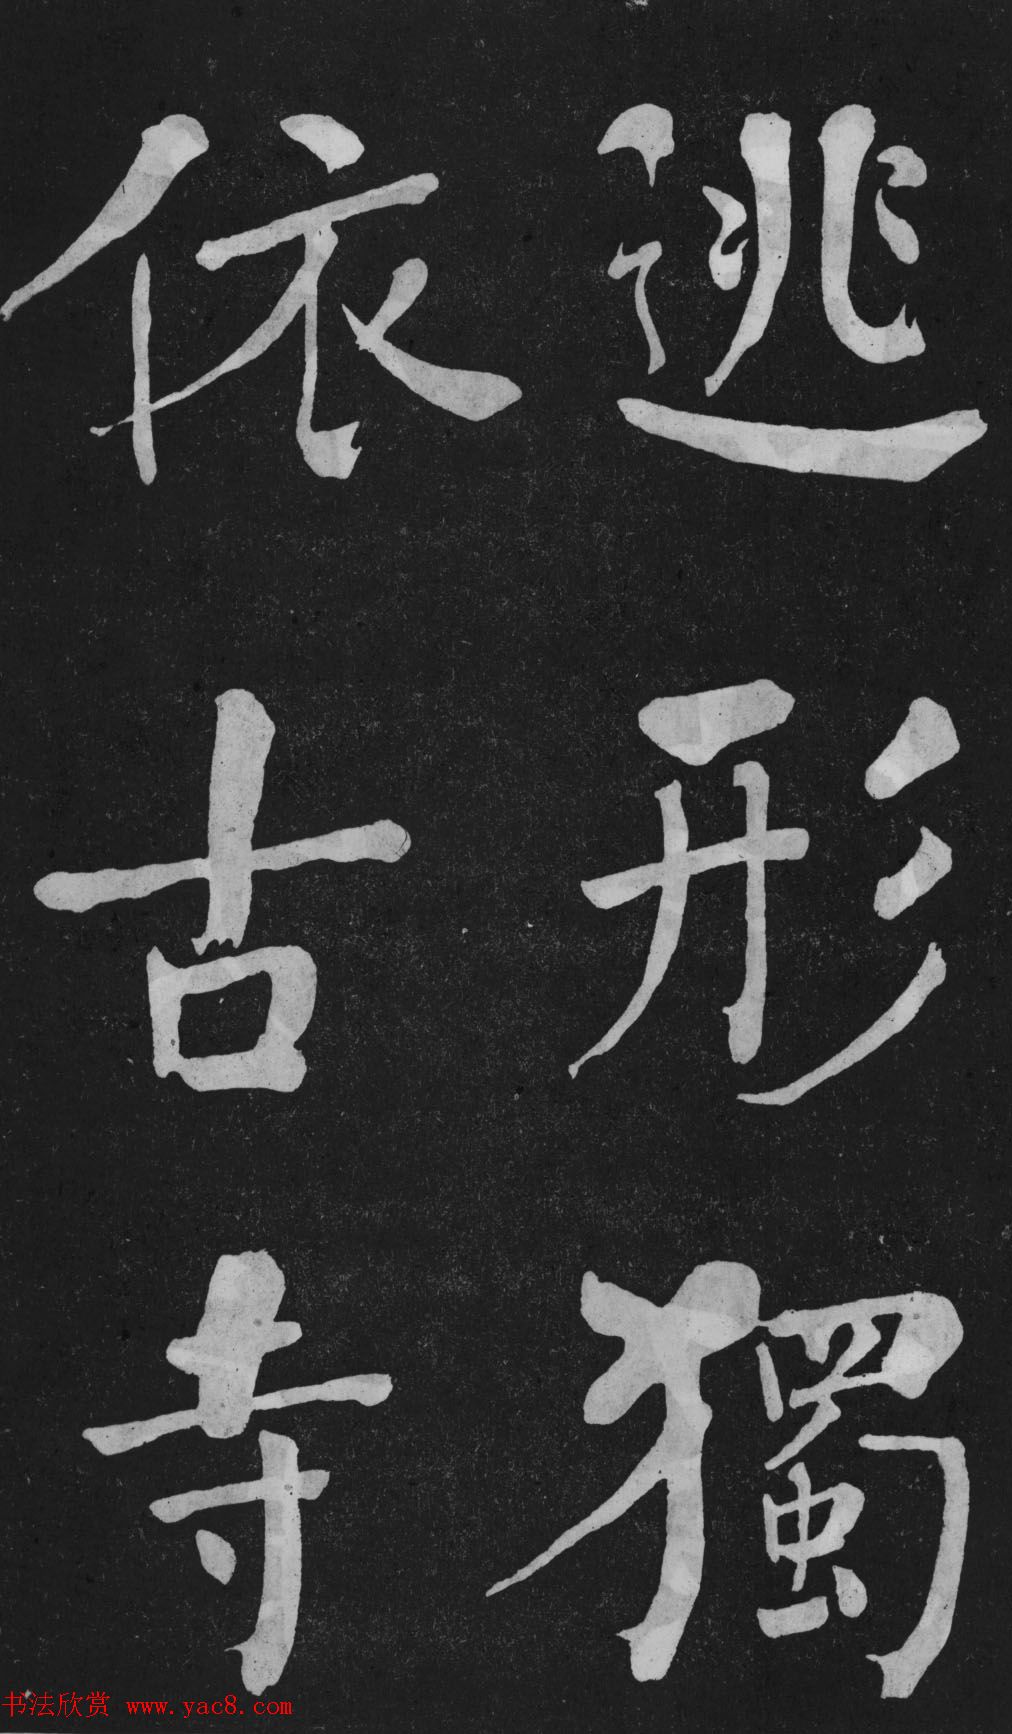 逃形獨
依古寺
书法欣赏 www.yac8.com